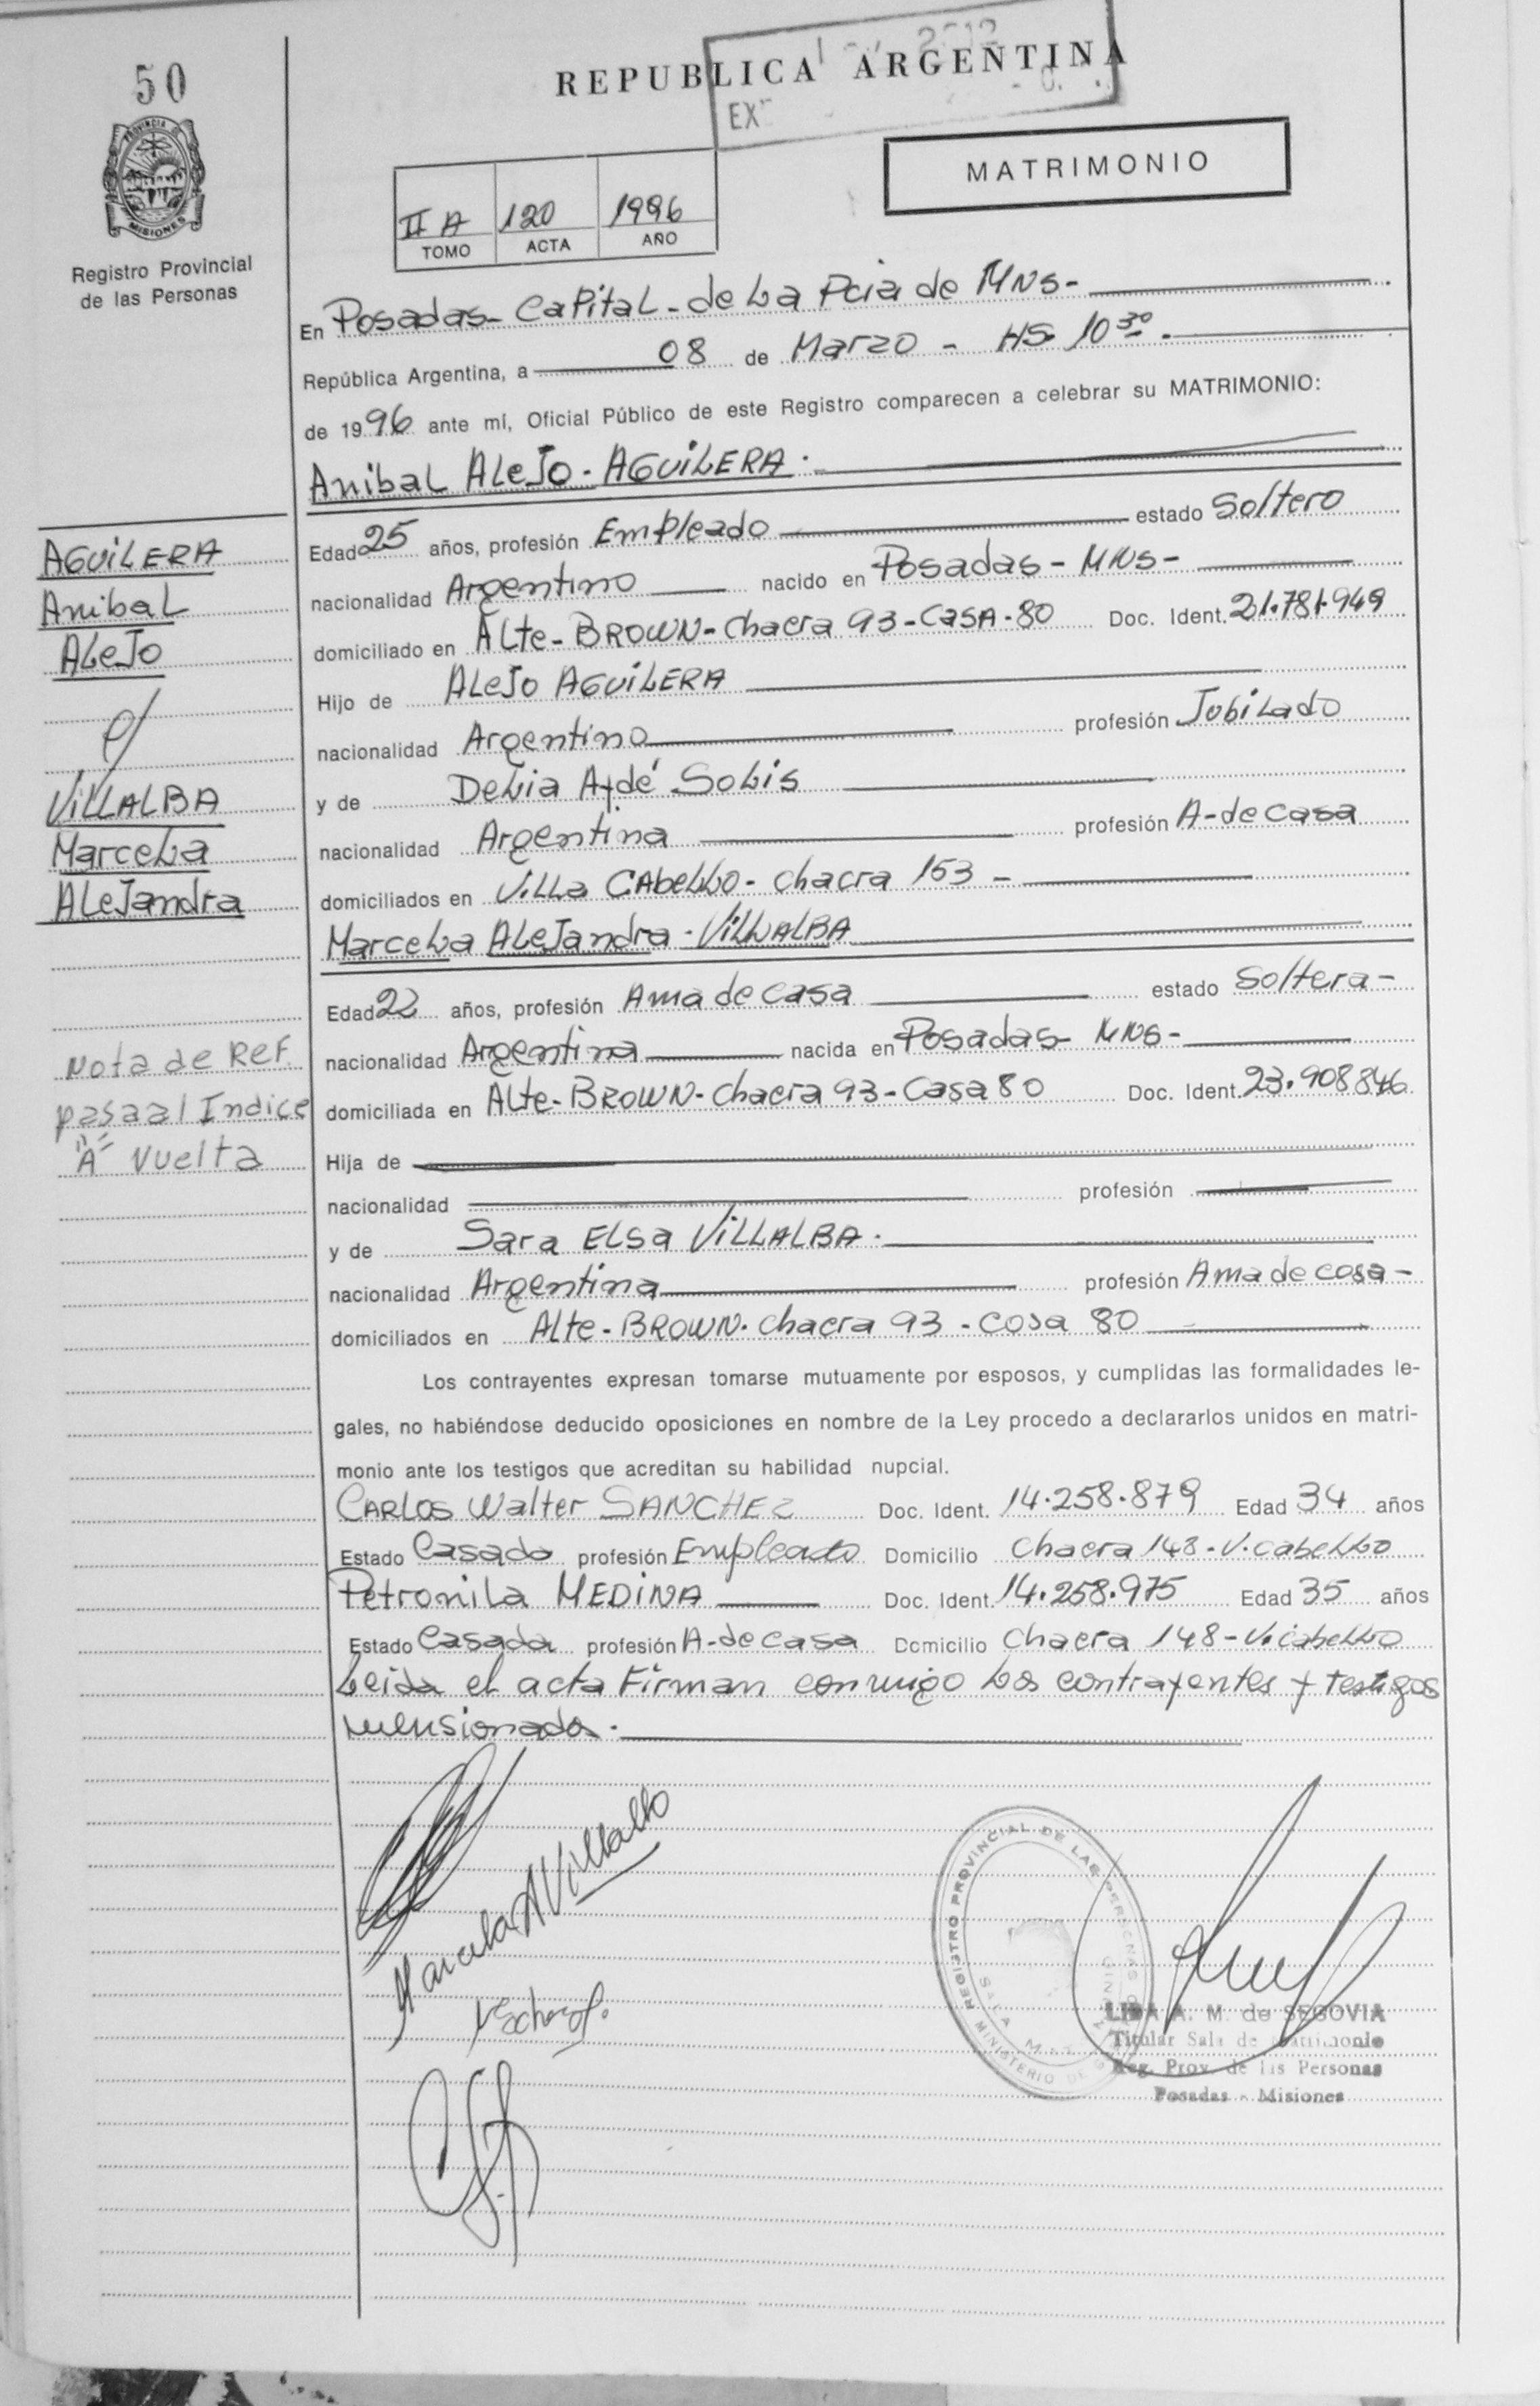 50
PROVINCIA DE
MISIONES
Registro Provincial
de las Personas
REPUBLICA ARGENTINA
EX
MATRIMONIO
II A 120 1996
TOMO ACTA AÑO
En Posadas- Capital- de La Pcia de MNS-
República Argentina, a 08 de Marzo - HS. 10 30.
de 1996 ante mí, Oficial Público de este Registro comparecen a celebrar su MATRIMONIO:
Anibal ALeJo - AGUiLERA.
Edad 25 años, profesión Empleado estado Soltero
nacionalidad Argentino nacido en Posadas - MNS-
domiciliado en Alte- BROWN- Chacra 93- CASA-80 Doc. Ident. 21.781.949
Hijo de ALeJo AGUiLERA
nacionalidad Argentino profesión Jubilado
y de DeLia Aydé SoLis
nacionalidad Argentina profesión A-de casa
domiciliados en ViLLa CAbeLLo- chacra 153 -
MarceLa ALeJandra - ViLLALBA
Edad 22 años, profesión Ama de casa estado Soltera-
nacionalidad Argentina nacida en Posadas- MNS-
domiciliada en Alte- BROWN- Chacra 93- Casa 80 Doc. Ident. 23.908846
Hija de
nacionalidad profesión
y de Sara ELSa ViLLALBA.
nacionalidad Argentina profesión Ama de casa-
domiciliados en Alte- BROWN. Chacra 93 - Casa 80
Los contrayentes expresan tomarse mutuamente por esposos, y cumplidas las formalidades le-
gales, no habiéndose deducido oposiciones en nombre de la Ley procedo a declararlos unidos en matri-
monio ante los testigos que acreditan su habilidad nupcial.
CARLOS Walter SANCHEZ Doc. Ident. 14.258.879 Edad 34 años
Estado Casado profesión Empleado Domicilio Chacra 148- V. cabeLLo
Petronila MEDiNA Doc. Ident. 14.258.975 Edad 35 años
Estado Casada profesión A-de casa Domicilio Chacra 148- V. cabeLLo
Leida el acta Firman conmigo Los contrayentes y testigos
mensionados.
AGUiLERA
Anibal
ALeJo
c/
ViLLALBA
MarceLa
ALeJandra
Nota de Ref.
pasa al Indice
"A" Vuelta
Marcela A Villalba
REGISTRO PROVINCIAL DE LAS PERSONAS
MINISTERIO DE
SALA
A. M. de SEGOVIA
Titular Sala de Matrimonio
Reg. Prov. de las Personas
Posadas - Misiones